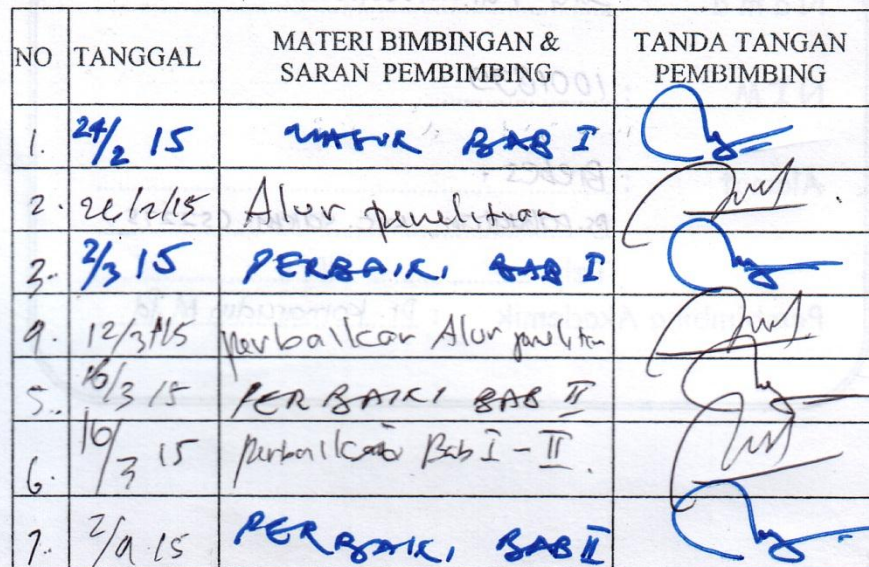 NO TANGGAL MATERI BIMBINGAN & SARAN PEMBIMBING TANDA TANGAN PEMBIMBING
1. 24/2 15 MASUK BAB I
2. 26/2/15 Alur penelitian
3. 2/3 15 PERBAIKI BAB I
4. 12/3/15 perbaikan Alur penelitian
5. 16/3 15 PERBAIKI BAB II
6. 16/3 15 perbaikan Bab I - II.
7. 2/4 15 PERBAIKI BAB II